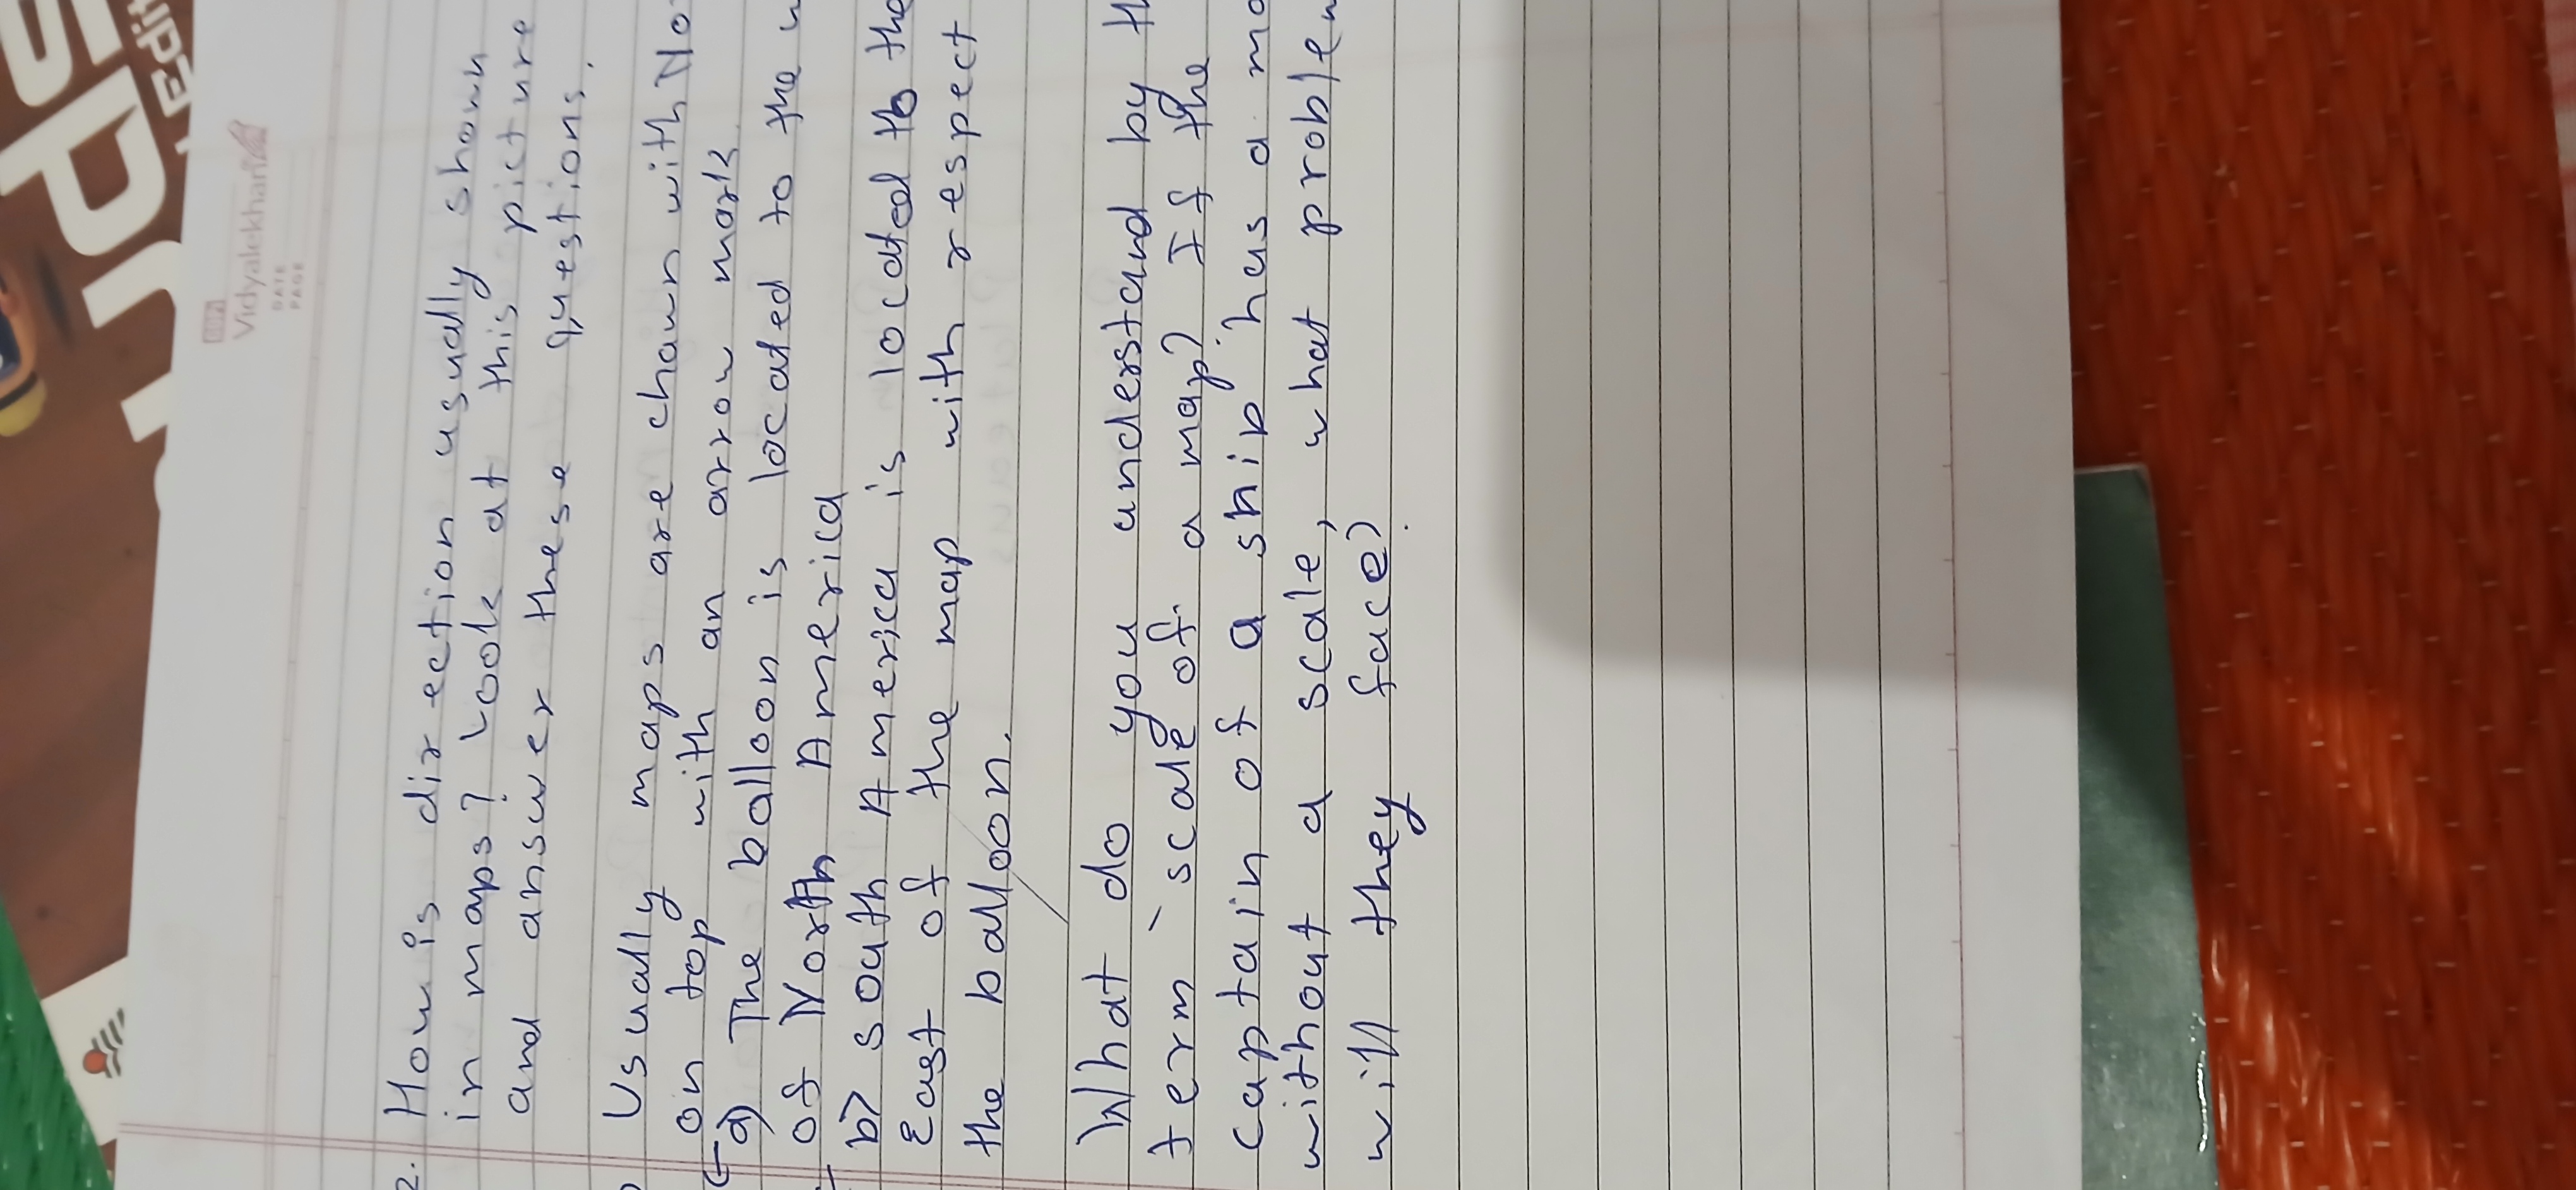 Vidyalekhan
DATE
PAGE
2. How is direction usually shown
in maps? Look at this picture
and answer these questions.
Usually maps are chawn with No
on top with an arrow mark
a) The balloon is located to the w
of North America
b) South America is located to the
East of the map with respect
the balloon.
What do you understand by th
term `scale of a map? If the
captain of a ship has a ma
without a scale, what problem
will they face?